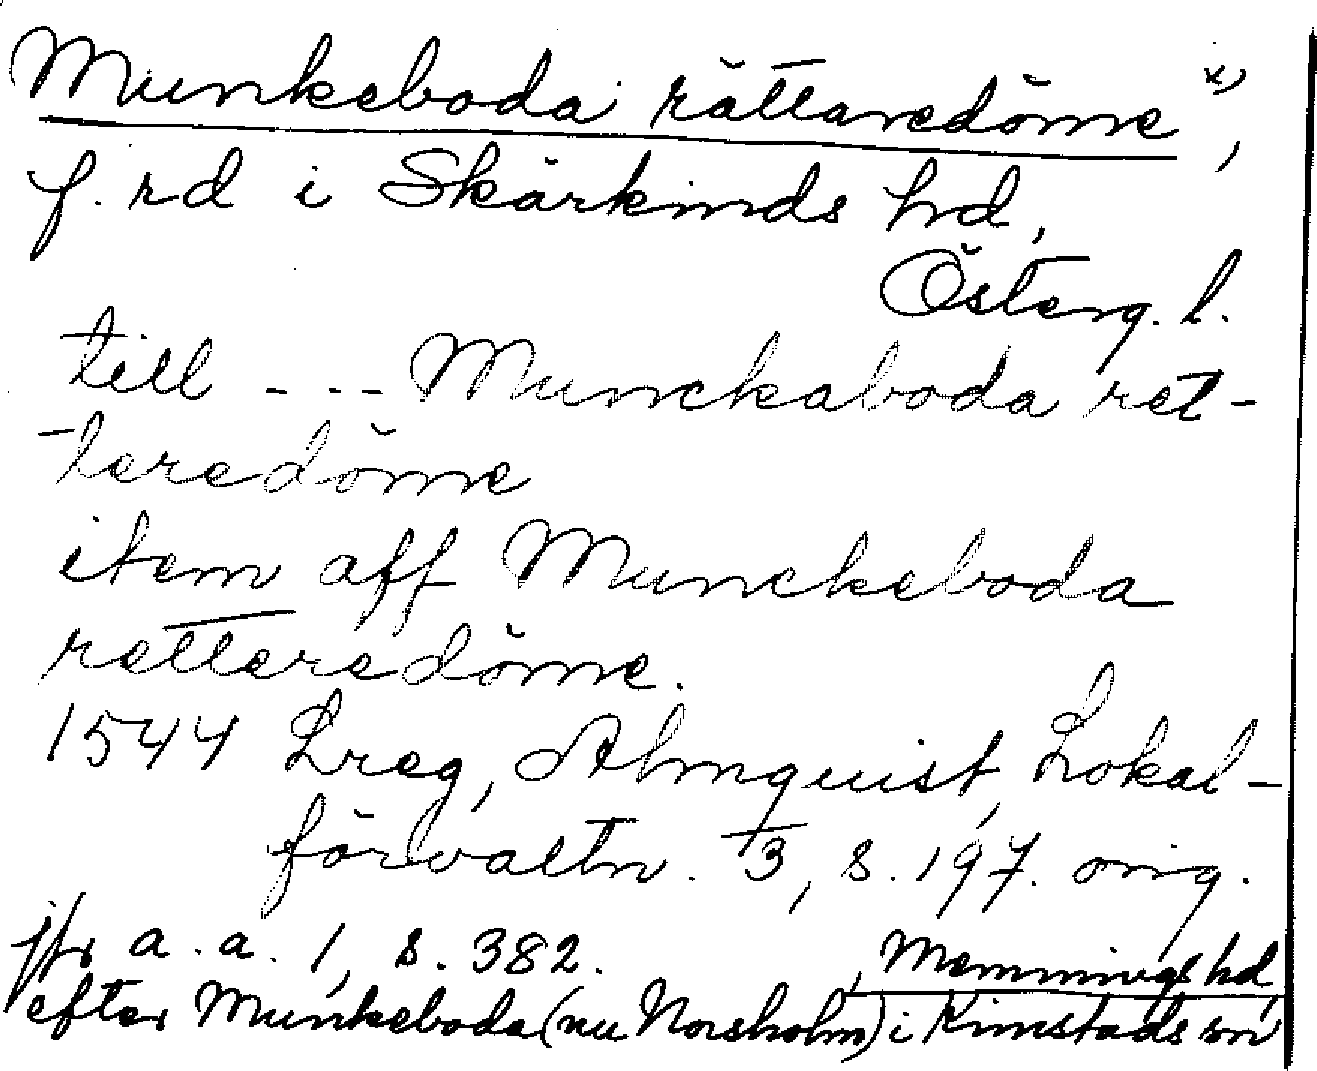 Munkeboda rättaredöme x),
f. rd i Skärkinds hd,
Österg. l.
till - - - Munckaboda ret-
teredöme
item aff Munckeboda
retteredöme.
1544 Lreg, Almquist, Lokal-
förvaltn. 3, s. 197. orig.
jfr a. a. 1, s. 382.
efter Munkeboda (nu Norsholm) i Kimstads sn, Memmings hd